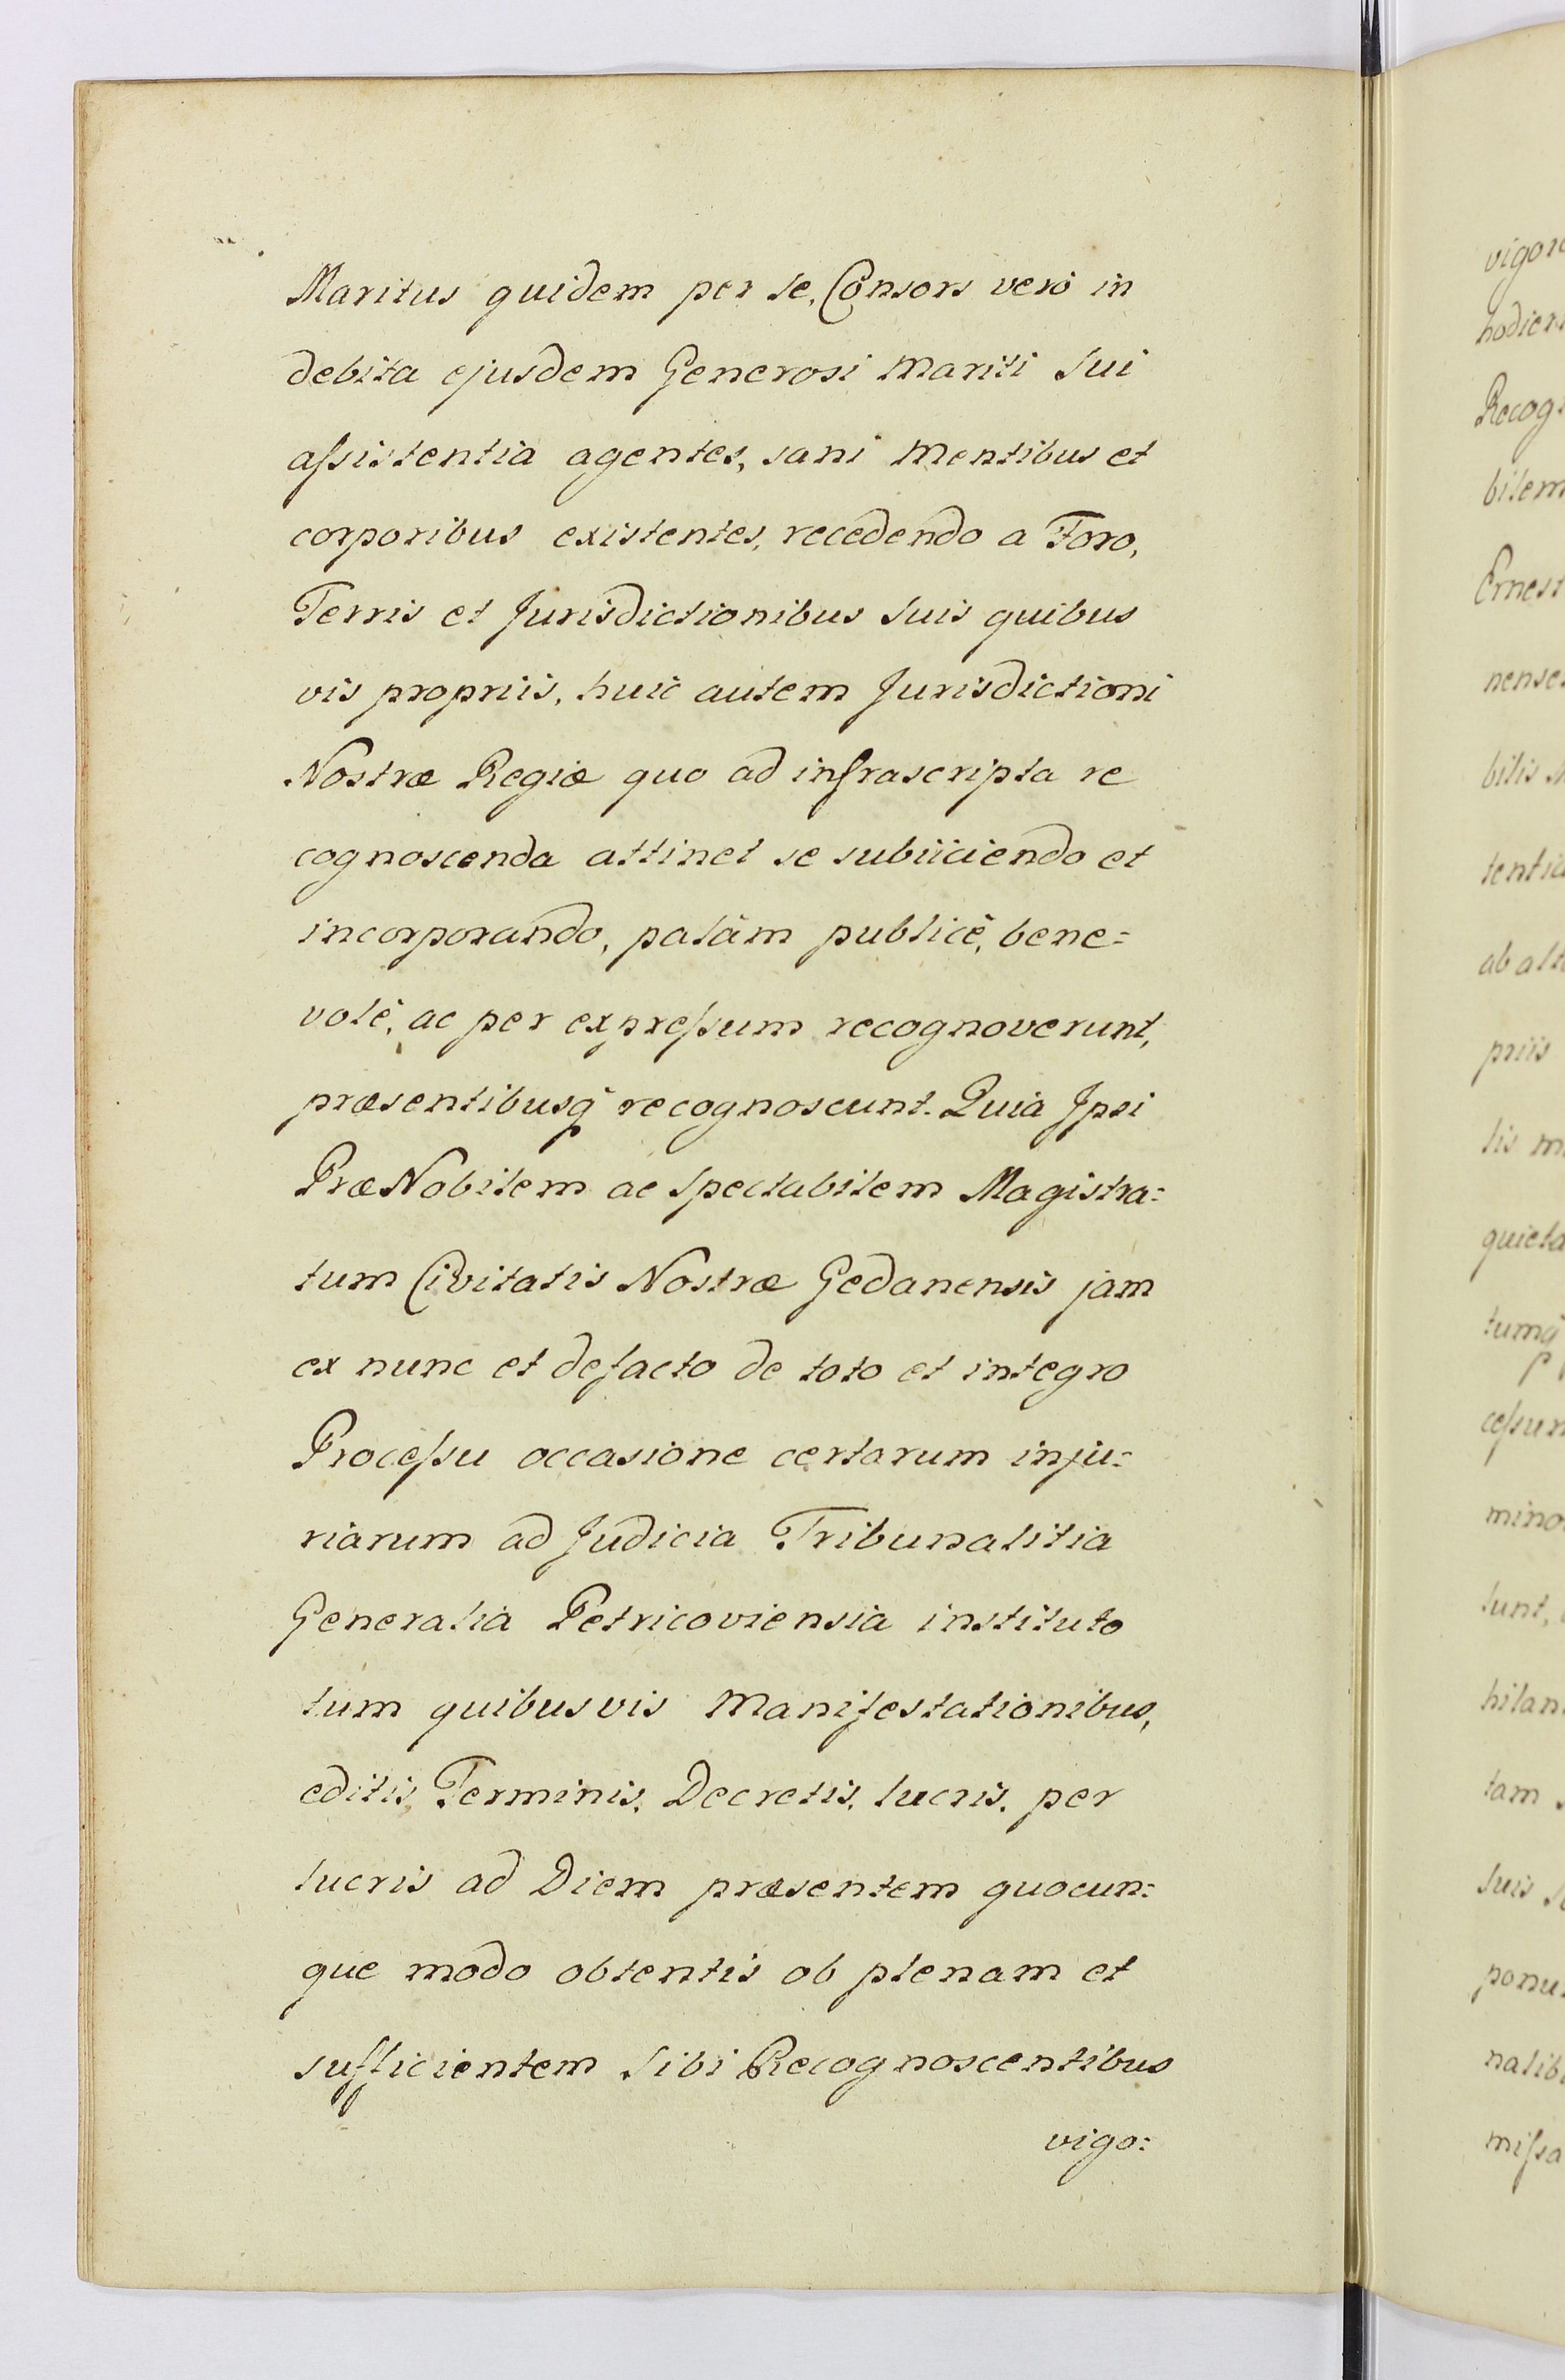 Maritus quidem per se, Consors verò in
debita ejusdem Generosi Mariti Sui
aſsistentia agentes, sani Mentibus et
corporibus existentes, recedendo a Foro,
Terris et Jurisdictionibus Suis quibus
vis propriis, huic autem Jurisdictioni
Nostræ Regiæ quo ad infrascripta re
cognoscenda attinet se subiiciendo et
incorporando, palàm publicè, bene=
volè, ac per expreſsum recognoverunt,
præsentibusq recognoscunt. Quia Ipsi
PræNobilem ac Spectabilem Magistra=
tum Civitatis Nostræ Gedanensis jam
ex nunc et defacto de toto et integro
Proceſsu occasione certarum inju=
riarum ad Judicia Tribunalitia
Generalia Petricoviensia instituto
tum quibusvis Manifestationibus,
editis, Terminis, Decretis, lucris, per
lucris ad Diem præsentem quocun=
que modo obtentis ob plenam et
sufficientem Sibi Recognoscentibus
vigo=
vigor
hodier
Recog
bilem
Ernest
nense
bilis
tentia
ab al
priis
lis m
quieta
tumq
ceſsu
mino
lunt,
hilan
tam
Suis
ponu
nalib
miſsa